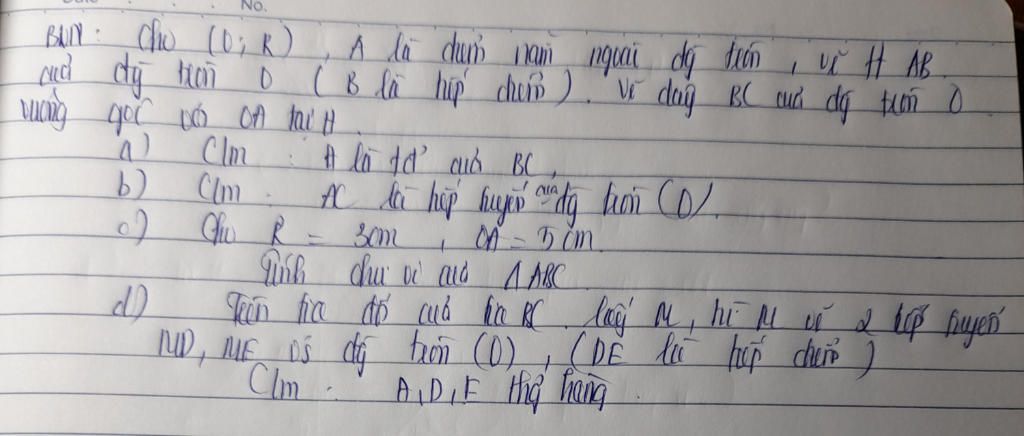 No.
BVN: Cho (O; R), A là điểm nằm ngoài đg tròn, vẽ tt AB
của đg tròn O (B là tiếp điểm). Vẽ dây BC của đg tròn O
vuông góc với OA tại H.
a) Clm: H là tđ' của BC,
b) Clm: AC là tiếp tuyến của đg tròn (O).
c) Cho R = 3cm, OA = 5cm.
Tính chu vi của ΔABC
d) Trên tia đối của tia BC lấy M, từ M vẽ 2 tiếp tuyến
MD, ME với đg tròn (O), (DE là tiếp điểm)
Clm: A, D, E thg hàng.